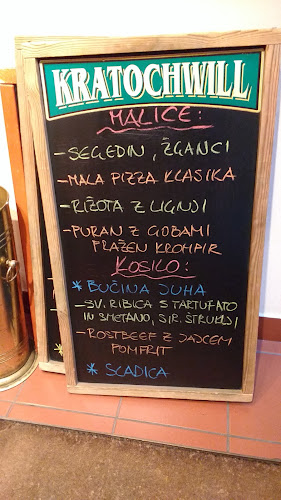 KRATOCHWILL
MALICE:
- SEGEDIN, ŽGANCI
- MALA PIZZA KLASIKA
- RIŽOTA Z LIGNJI
- PURAN Z GOBAMI
PRAŽEN KROMPIR
KOSILO:
* BUČINA JUHA
- SV. RIBICA S TARTUFATO
IN SMETANO, SIR. ŠTRUKLJI
- ROSTBEEF Z JAJCEM
POMFRIT
* SLADICA